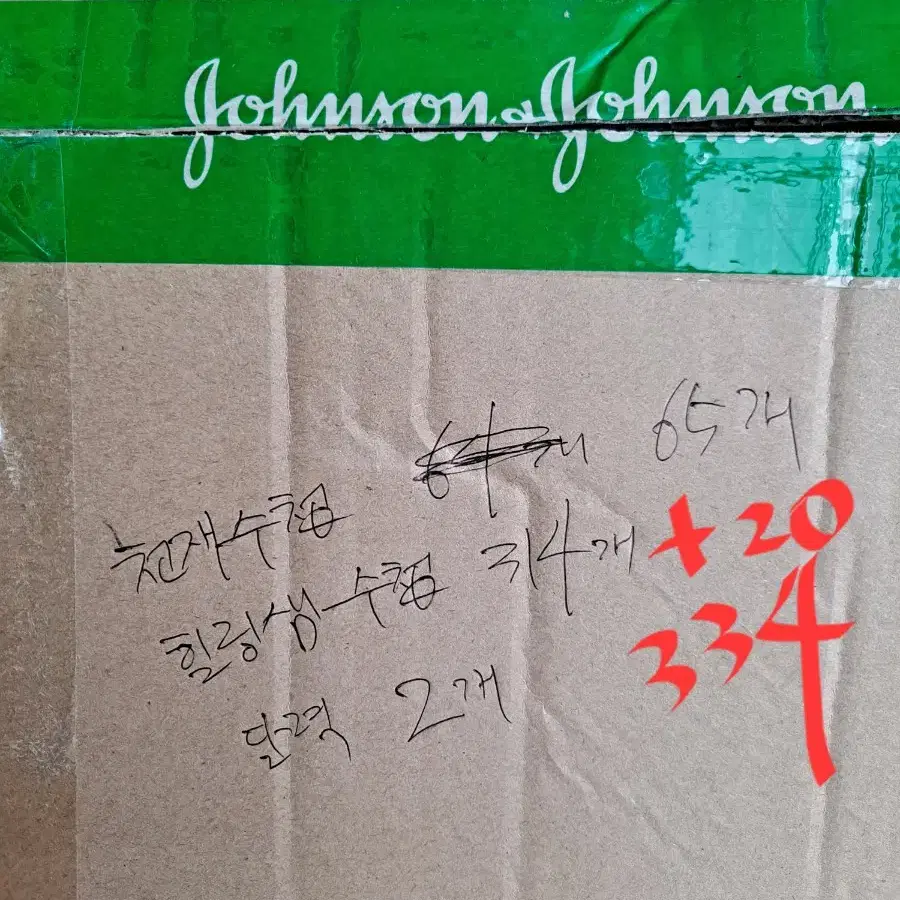 Johnson & Johnson
천재수첩 64개 65개
힐링샘수첩 314개 +20
334
달력 2개